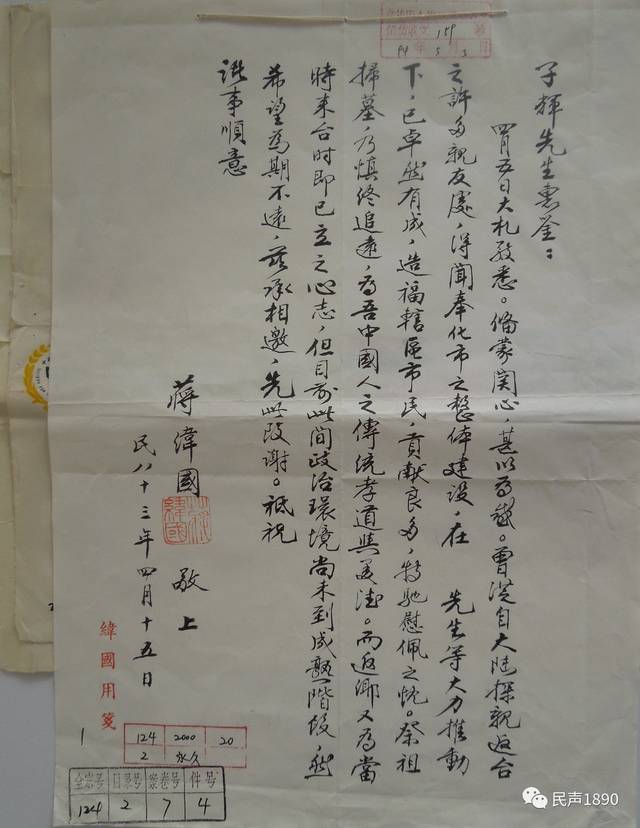 子輝先生惠鉴：
四月五日大札敬悉。備蒙関心，甚以為感。曾從自大陆探親返台
之許多親友處，得聞奉化市之整体建設，在 先生等大力推動
下，已卓然有成，造福轄區市民，貢献良多，特馳慰佩之忱。祭祖
掃墓，乃慎終追遠，為吾中國人之傳統孝道與美德。而返鄉又為當
時来台时即已立之心志，但目前此間政治環境尚未到成熟階段，然
希望為期不遠，承相邀，先此致謝。祗祝
諸事順意
蔣緯國 敬上
蔣緯國
民八十三年四月十五日
緯國用箋
收文 159 号
94年5月3日
1
124 2000 20
2 永久
全宗号 目录号 案卷号 件号
124 2 7 4
民声1890